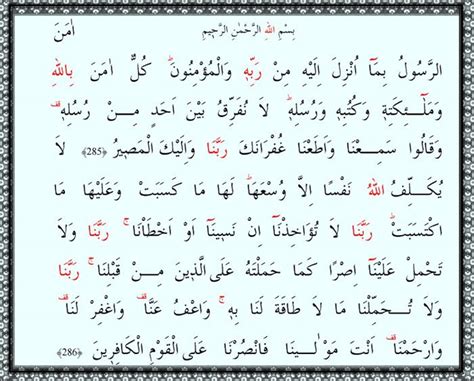 بِسْمِ اللهِ الرَّحْمٰنِ الرَّحِيمِ اٰمَنَ
الرَّسُولُ بِمَٓا اُنْزِلَ اِلَيْهِ مِنْ رَبِّهٖ وَالْمُؤْمِنُونَۜ كُلٌّ اٰمَنَ بِاللهِ
وَمَلٰٓئِكَتِهٖ وَكُتُبِهٖ وَرُسُلِهٖۜ لَا نُفَرِّقُ بَيْنَ اَحَدٍ مِنْ رُسُلِهٖ۠
وَقَالُوا سَمِعْنَا وَاَطَعْنَا غُفْرَانَكَ رَبَّنَا وَاِلَيْكَ الْمَصِيرُ ﴿285﴾ لَا
يُكَلِّفُ اللهُ نَفْسًا اِلَّا وُسْعَهَاۜ لَهَا مَا كَسَبَتْ وَعَلَيْهَا مَا
اكْتَسَبَتْۜ رَبَّنَا لَا تُؤَاخِذْنَٓا اِنْ نَسِينَٓا اَوْ اَخْطَأْنَاۚ رَبَّنَا وَلَا
تَحْمِلْ عَلَيْنَٓا اِصْرًا كَمَا حَمَلْتَهُ عَلَى الَّذِينَ مِنْ قَبْلِنَاۚ رَبَّنَا
وَلَا تُحَمِّلْنَا مَا لَا طَاقَةَ لَنَا بِهٖۚ وَاعْفُ عَنَّا۠ وَاغْفِرْ لَنَا۠
وَارْحَمْنَا۠ اَنْتَ مَوْلٰينَا فَانْصُرْنَا عَلَى الْقَوْمِ الْكَافِرِينَ ﴿286﴾